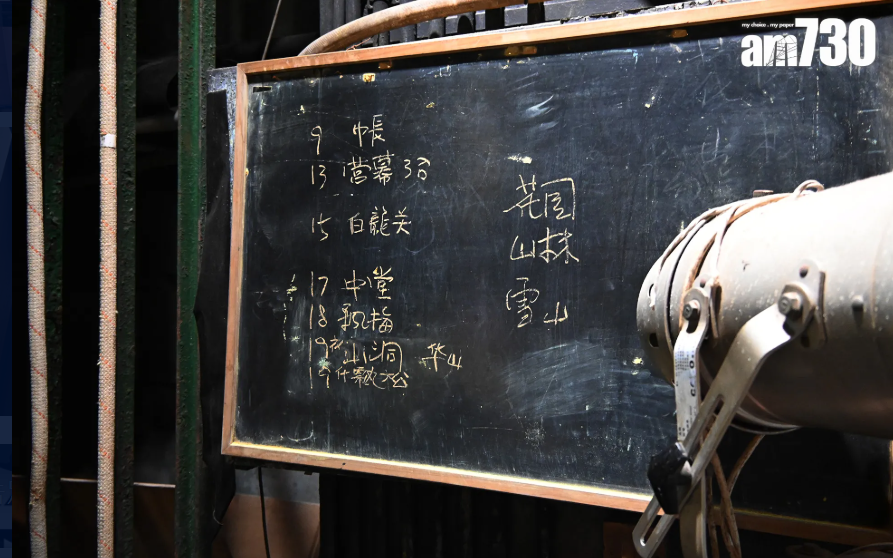 my choice . my paper
am730
9 帳
13 營幕 30
15 白龍关
17 中堂
18 飄梅
19 山洞 华山
19 飄松
花园
山林
雪山